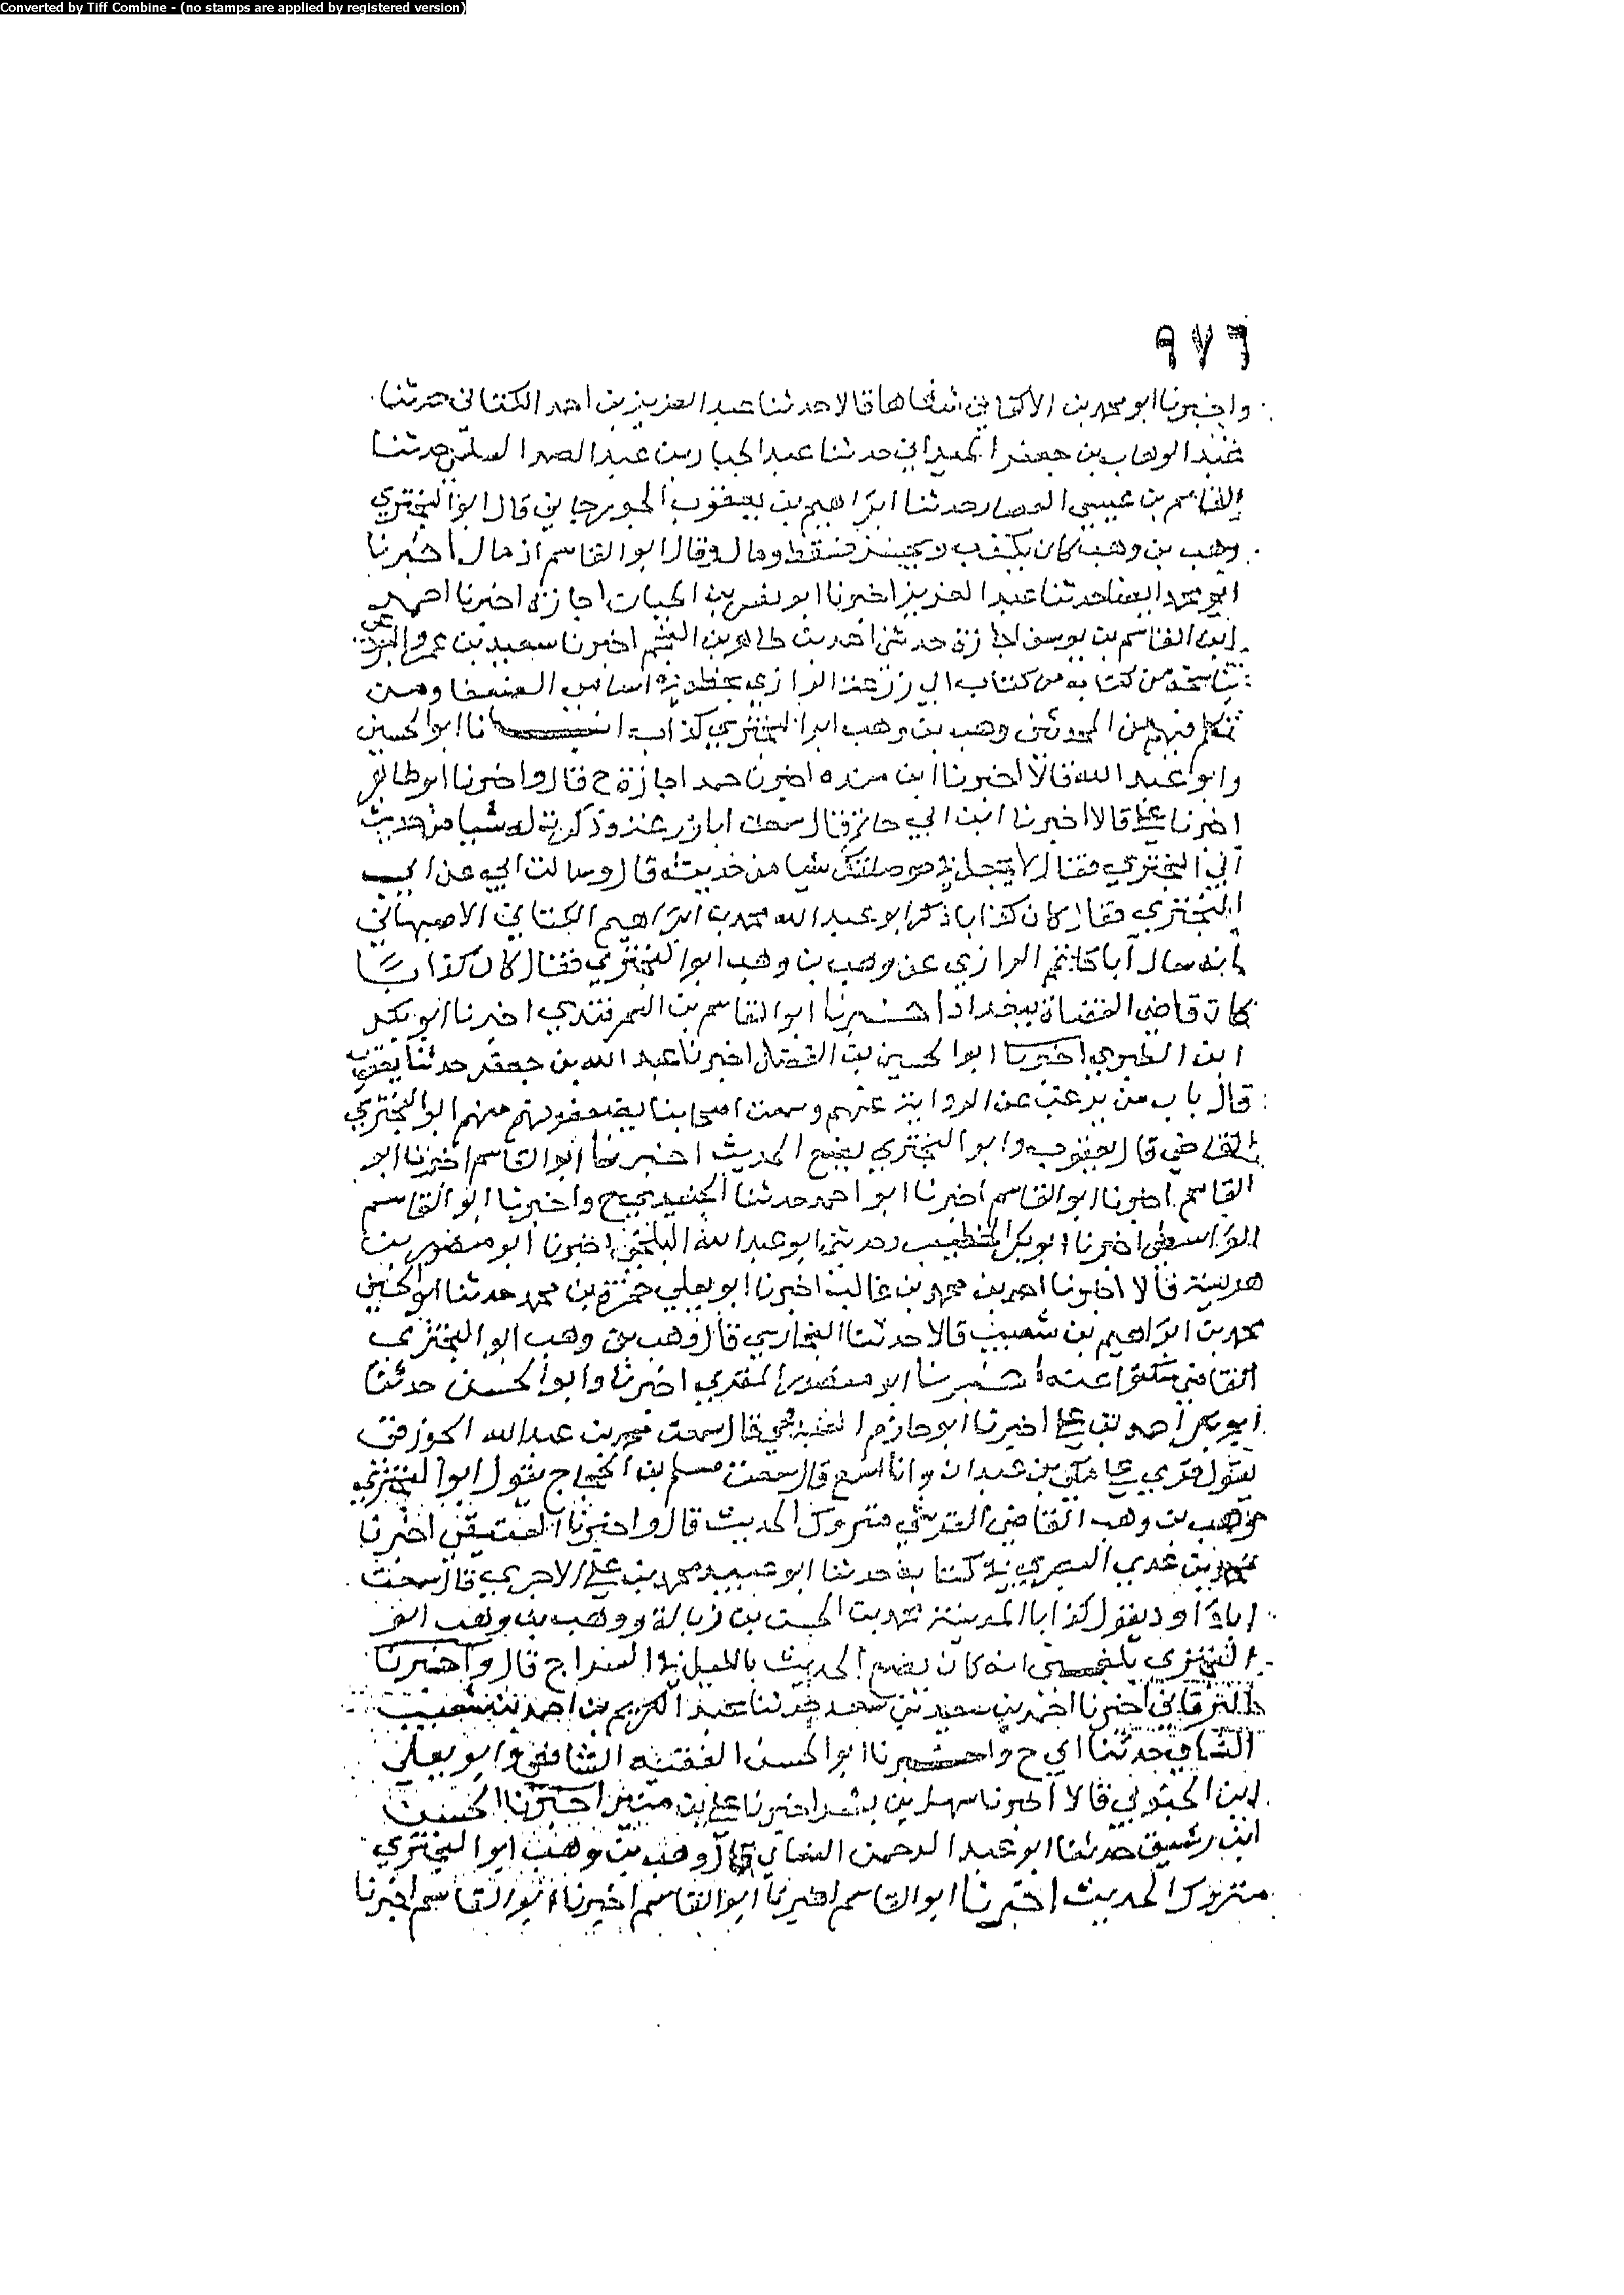 Converted by Tiff Combine - (no stamps are applied by registered version)
٩٧٦
واخبرنا ابو محمد بن الاكفاني شفاها قالا حدثنا عبد العزيز بن احمد الكتاني حدثنا
عبد الوهاب بن جعفر الميداني حدثنا عبد الجبار بن عبد الصمد السلمي حدثنا
القاسم بن عيسى العصار حدثنا ابراهيم بن يعقوب الجوزجاني قال ابو البختري
وهب بن وهب كان يكذب و فسقط ومال وقال ابو القاسم اذ مال اخبرنا
ابو محمد ايضا حدثنا عبد العزيز اخبرنا ابو نصر بن الجبان اجازة اخبرنا احمد
ابن القاسم بن يوسف اجازة حدثني احمد بن طاهر بن النجم اخبرنا سعيد بن عمرو البردعي
من كتابه من كتاب ابي زرعة الرازي بخطه في اسامي الضعفا ومن
تكلم فيهم من المحدثين وهب بن وهب ابو البختري كذاب انا ابو الحسين
وابو عبد الله قالا اخبرنا ابن منده اخبرنا حمد اجازة ح قال واخبرنا ابو طاهر
اخبرنا علي قالا اخبرنا ابن ابي حاتم قال سمعت ابا زرعة وذكرت له شيا من حديث
ابي البختري فقال لا شيا من حديثه قال وسالت ابي عن ابي
البختري فقال كان كذابا ذكر ابو عبد الله محمد بن ابراهيم الكتاني الاصبهاني
انه سال ابا حاتم الرازي عن وهب بن وهب ابو البختري فقال كان كذابا
كان قاضي القضاة ببغداد اخبرنا ابو القاسم بن السمرقندي اخبرنا ابو بكر
ابن الطبري اخبرنا ابو الحسين بن الفضل اخبرنا عبد الله بن جعفر حدثنا يعقوب
قال باب من يرغب عن الرواية عنهم وسمعت اصحابنا يضعفونهم منهم ابو البختري
القاضي قال يعقوب وابو البختري يضع الحديث اخبرنا ابو القاسم اخبرنا ابو
القاسم اخبرنا ابو القاسم اخبرنا ابو احمد حدثنا الجنيدي ح واخبرنا ابو القاسم
الواسطي اخبرنا ابو بكر الخطيب وحدثني ابو عبد الله البلخي اخبرنا ابو منصور بن
هريسة قالا اخبرنا احمد بن محمد بن غالب اخبرنا ابو يعلي حمزة بن محمد حدثنا ابو الحسين
محمد بن ابراهيم بن شعيب قالا حدثنا البخاري قال وهب بن وهب ابو البختري
القاضي سكتوا عنه اخبرنا ابو منصور المقري اخبرنا وابو الحسن حدثنا
ابو بكر احمد بن علي اخبرنا ابو حازم العبدوي قال سمعت محمد بن عبد الله الجوزقي
يقول قري علي مكي بن عبدان وانا اسمع قال سمعت مسلم بن الحجاج يقول ابو البختري
وهب بن وهب القاضي القرشي متروك الحديث قال واخبرنا العتيقي اخبرنا
محمد بن عدي البصري في كتابه حدثنا ابو عبيد محمد بن علي الاجري قال سمعت
ابا داود يقول كذابا المدينة محمد بن الحسن بن زبالة ووهب بن وهب ابو
البختري بلغني انه كان يضع الحديث بالليل في السراج قال واخبرنا
البرقاني اخبرنا احمد بن سعيد بن سعد حدثنا عبد الكريم بن احمد بن شعيب
النساي حدثنا ابي ح واخبرنا ابو الحسن الفقيه الشافعي وابو يعلي
ابن الحبوبي قالا اخبرنا سهل بن بشر اخبرنا علي بن منير اخبرنا الحسن
ابن رشيق حدثنا ابو عبد الرحمن النساي قال وهب بن وهب ابو البختري
متروك الحديث اخبرنا ابو القاسم اخبرنا ابو القاسم اخبرنا ابو القاسم اخبرنا